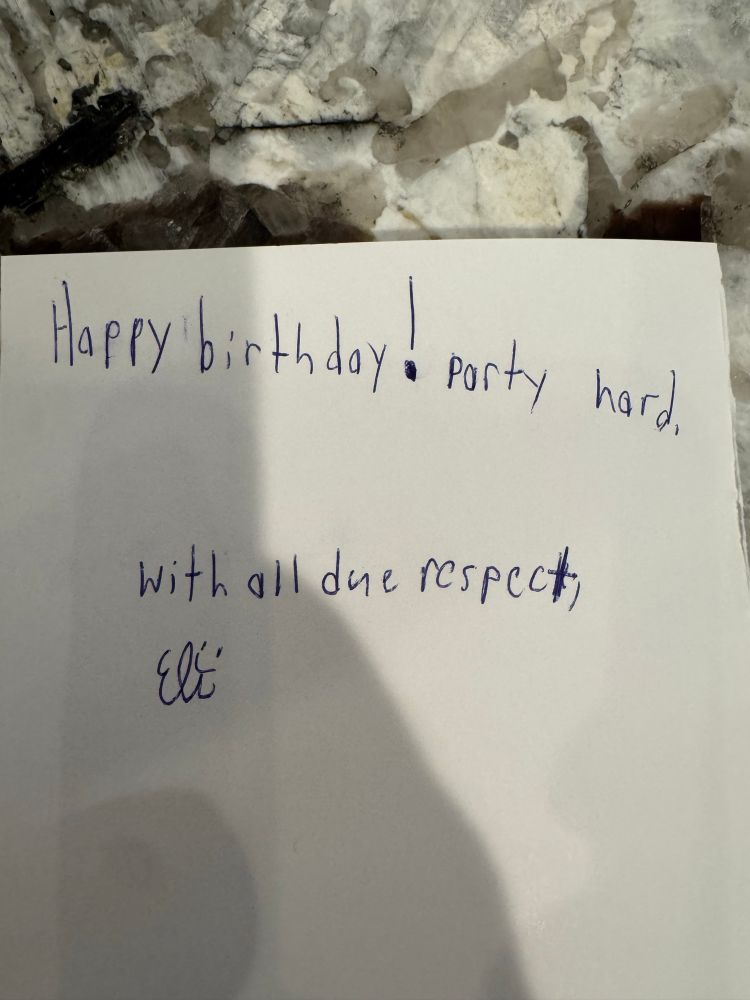 Happy birthday! party hard.
with all due respect,
Eli